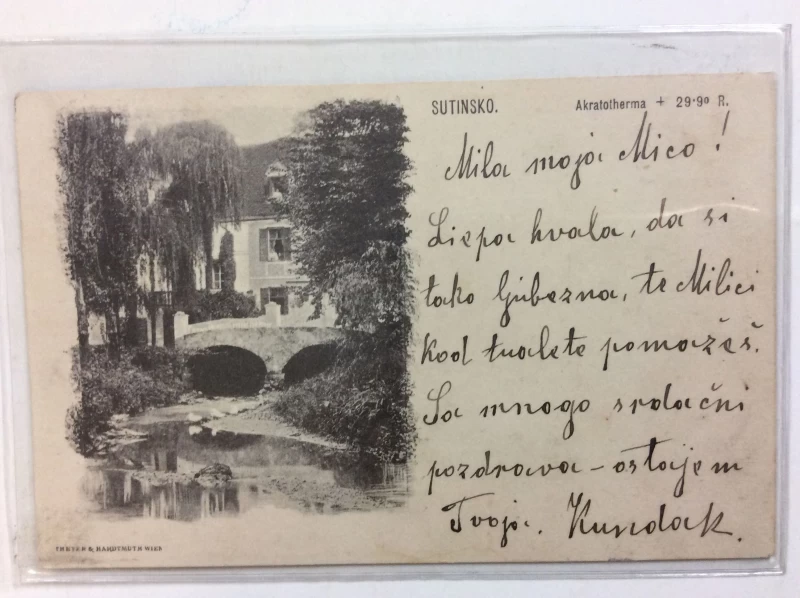 SUTINSKO. Akratotherma + 29·9º R.
Mila moja Mico!
Liepa hvala, da si
tako ljubezna, te Milici
kod tualete pomažeš.
Sa mnogo srdačni
pozdrava – ostajem
Tvoja. Kundak.
THEYER & HARDTMUTH WIEN